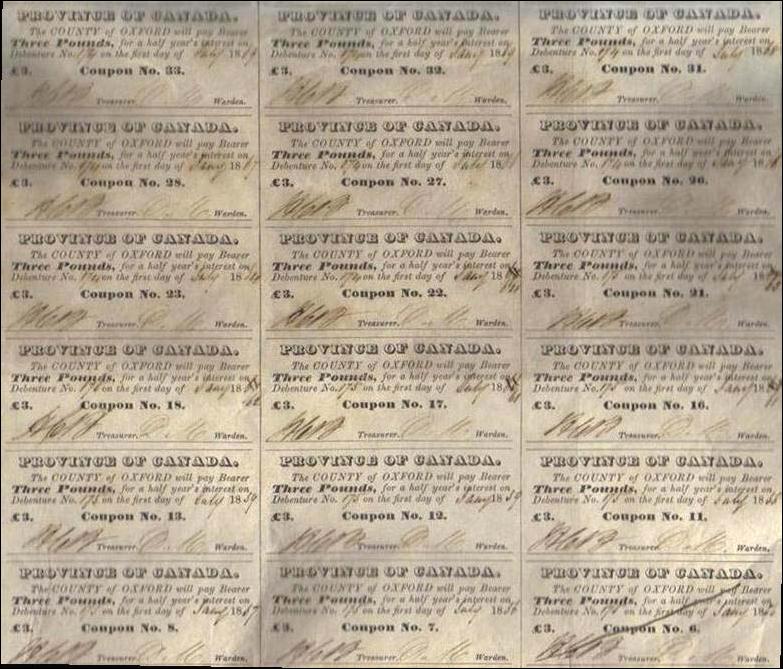 PROVINCE OF CANADA.
The COUNTY of OXFORD will pay Bearer
Three Pounds, for a half year's interest on
Debenture No. on the first day of July 18
£3. Coupon No. 33.
Treasurer. Warden.
PROVINCE OF CANADA.
The COUNTY of OXFORD will pay Bearer
Three Pounds, for a half year's interest on
Debenture No. on the first day of Jany 18
£3. Coupon No. 32.
Treasurer. Warden.
PROVINCE OF CANADA.
The COUNTY of OXFORD will pay Bearer
Three Pounds, for a half year's interest on
Debenture No. on the first day of July 18
£3. Coupon No. 31.
Treasurer. Warden.
PROVINCE OF CANADA.
The COUNTY of OXFORD will pay Bearer
Three Pounds, for a half year's interest on
Debenture No. on the first day of Jany 18
£3. Coupon No. 28.
Treasurer. Warden.
PROVINCE OF CANADA.
The COUNTY of OXFORD will pay Bearer
Three Pounds, for a half year's interest on
Debenture No. on the first day of July 18
£3. Coupon No. 27.
Treasurer. Warden.
PROVINCE OF CANADA.
The COUNTY of OXFORD will pay Bearer
Three Pounds, for a half year's interest on
Debenture No. on the first day of Jany 18
£3. Coupon No. 26.
Treasurer. Warden.
PROVINCE OF CANADA.
The COUNTY of OXFORD will pay Bearer
Three Pounds, for a half year's interest on
Debenture No. on the first day of July 18
£3. Coupon No. 23.
Treasurer. Warden.
PROVINCE OF CANADA.
The COUNTY of OXFORD will pay Bearer
Three Pounds, for a half year's interest on
Debenture No. on the first day of Jany 18
£3. Coupon No. 22.
Treasurer. Warden.
PROVINCE OF CANADA.
The COUNTY of OXFORD will pay Bearer
Three Pounds, for a half year's interest on
Debenture No. on the first day of July 18
£3. Coupon No. 21.
Treasurer. Warden.
PROVINCE OF CANADA.
The COUNTY of OXFORD will pay Bearer
Three Pounds, for a half year's interest on
Debenture No. on the first day of Jany 18
£3. Coupon No. 18.
Treasurer. Warden.
PROVINCE OF CANADA.
The COUNTY of OXFORD will pay Bearer
Three Pounds, for a half year's interest on
Debenture No. on the first day of July 18
£3. Coupon No. 17.
Treasurer. Warden.
PROVINCE OF CANADA.
The COUNTY of OXFORD will pay Bearer
Three Pounds, for a half year's interest on
Debenture No. on the first day of Jany 18
£3. Coupon No. 16.
Treasurer. Warden.
PROVINCE OF CANADA.
The COUNTY of OXFORD will pay Bearer
Three Pounds, for a half year's interest on
Debenture No. on the first day of July 1859
£3. Coupon No. 13.
Treasurer. Warden.
PROVINCE OF CANADA.
The COUNTY of OXFORD will pay Bearer
Three Pounds, for a half year's interest on
Debenture No. on the first day of Jany 1859
£3. Coupon No. 12.
Treasurer. Warden.
PROVINCE OF CANADA.
The COUNTY of OXFORD will pay Bearer
Three Pounds, for a half year's interest on
Debenture No. on the first day of July 18
£3. Coupon No. 11.
Treasurer. Warden.
PROVINCE OF CANADA.
The COUNTY of OXFORD will pay Bearer
Three Pounds, for a half year's interest on
Debenture No. on the first day of Jany 1857
£3. Coupon No. 8.
Treasurer. Warden.
PROVINCE OF CANADA.
The COUNTY of OXFORD will pay Bearer
Three Pounds, for a half year's interest on
Debenture No. on the first day of July 18
£3. Coupon No. 7.
Treasurer. Warden.
PROVINCE OF CANADA.
The COUNTY of OXFORD will pay Bearer
Three Pounds, for a half year's interest on
Debenture No. on the first day of Jany 18
£3. Coupon No. 6.
Treasurer. Warden.